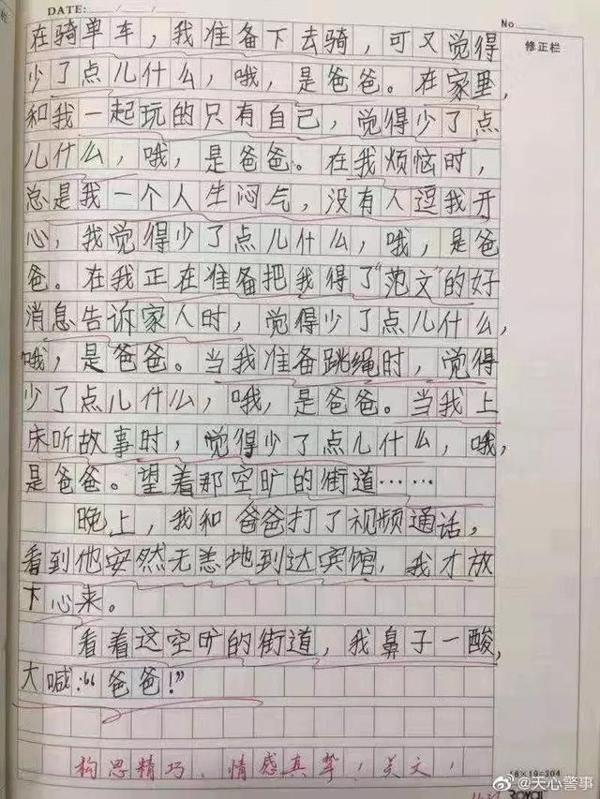 DATE: / /
No.
修正栏
在骑单车，我准备下去骑，可又觉得
少了点儿什么，哦，是爸爸。在家里，
和我一起玩的只有自己，觉得少了点
儿什么，哦，是爸爸。在我烦恼时，
总是我一个人生闷气，没有人逗我开
心，我觉得少了点儿什么，哦，是爸
爸。在我正在准备把我得了“范文”的好
消息告诉家人时，觉得少了点儿什么，
哦，是爸爸。当我准备跳绳时，觉得
少了点儿什么，哦，是爸爸。当我上
床听故事时，觉得少了点儿什么，哦，
是爸爸。望着那空旷的街道……
晚上，我和爸爸打了视频通话，
看到他安然无恙地到达宾馆，我才放
下心来。
看着这空旷的街道，我鼻子一酸，
大喊：“爸爸！”
构思精巧、情感真挚！美文！
@天心警事